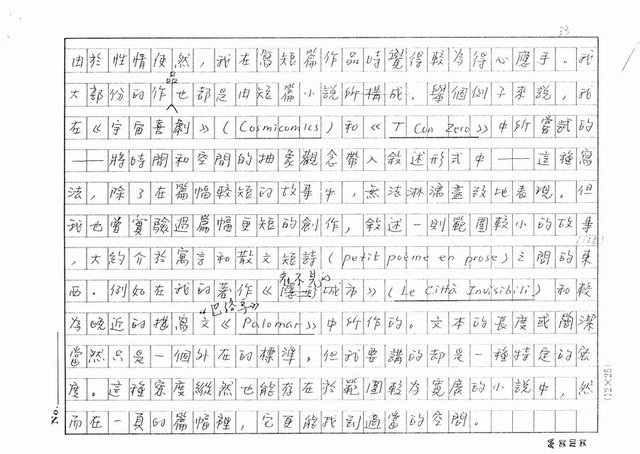 33
由於性情使然，我在寫短篇作品時覺得較為得心應手。我
大部份的作品也都是由短篇小說所構成。舉個例子來說，我
在《宇宙喜劇》(Cosmicomics)和《T Con Zero》中所嘗試的
——將時間和空間的抽象觀念帶入敘述形式中——這種寫
法，除了在篇幅較短的故事中，無法淋漓盡致地表現。但
我也曾實驗過篇幅更短的創作，敘述一則範圍較小的故事
，大約介於寓言和散文短詩(petit poème en prose)之間的東
西。例如在我的著作《看不見的城市》(Le Città Invisibili)和較
為晚近的描寫文“巴洛馬”《Palomar》中所作的。文本的長度或簡潔
當然只是一個外在的標準，但我要講的卻是一種特定的密
度。這種密度縱然也能存在於範圍較為寬廣的小說中，然
而在一頁的篇幅裡，它更能找到適當的空間。
No.
(12×25)